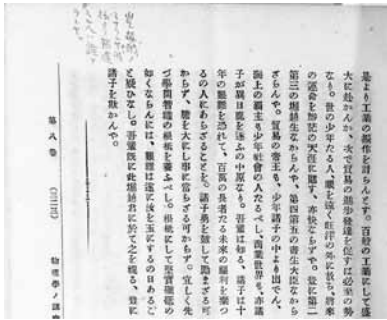 是より工業の振作を計らんとす。百般の工業にして盛
大に赴かんか、次で貿易の進歩發達を促すは必至の勢
なり。世の少年たる人、眼を遠く旺洋の外に放ち、將來
の運命を渺茫の天涯に賭す、亦快ならずや。豈に第二
第三の堀越生なからんや、第四第五の寄生大臣なから
ざらんや。貿易の帝王も、少年諸子の中より出でん、
海上の覇主も少年社會の人たるべし、商業世界も、亦諸
子が異日鹿を逐ふの中原なり。吾輩は知る、諸子は十
年の艱難を恐れて、百萬の長者たる未來の福利を棄つ
るの人にあらざることを。諸子勇を鼓して勤まざる可
からず、膽を大にし事に當らざる可からず。宜しく先
づ學問智識の根柢を養ふべし。根柢にして堅實磽确の
如くならんには、艱難は遂に汝を玉にするの日あるこ
と疑ひなし。吾輩既に此堀越君に於て之を視る、豈に
諸子を欺かんや。
第八卷
物理學ノ講